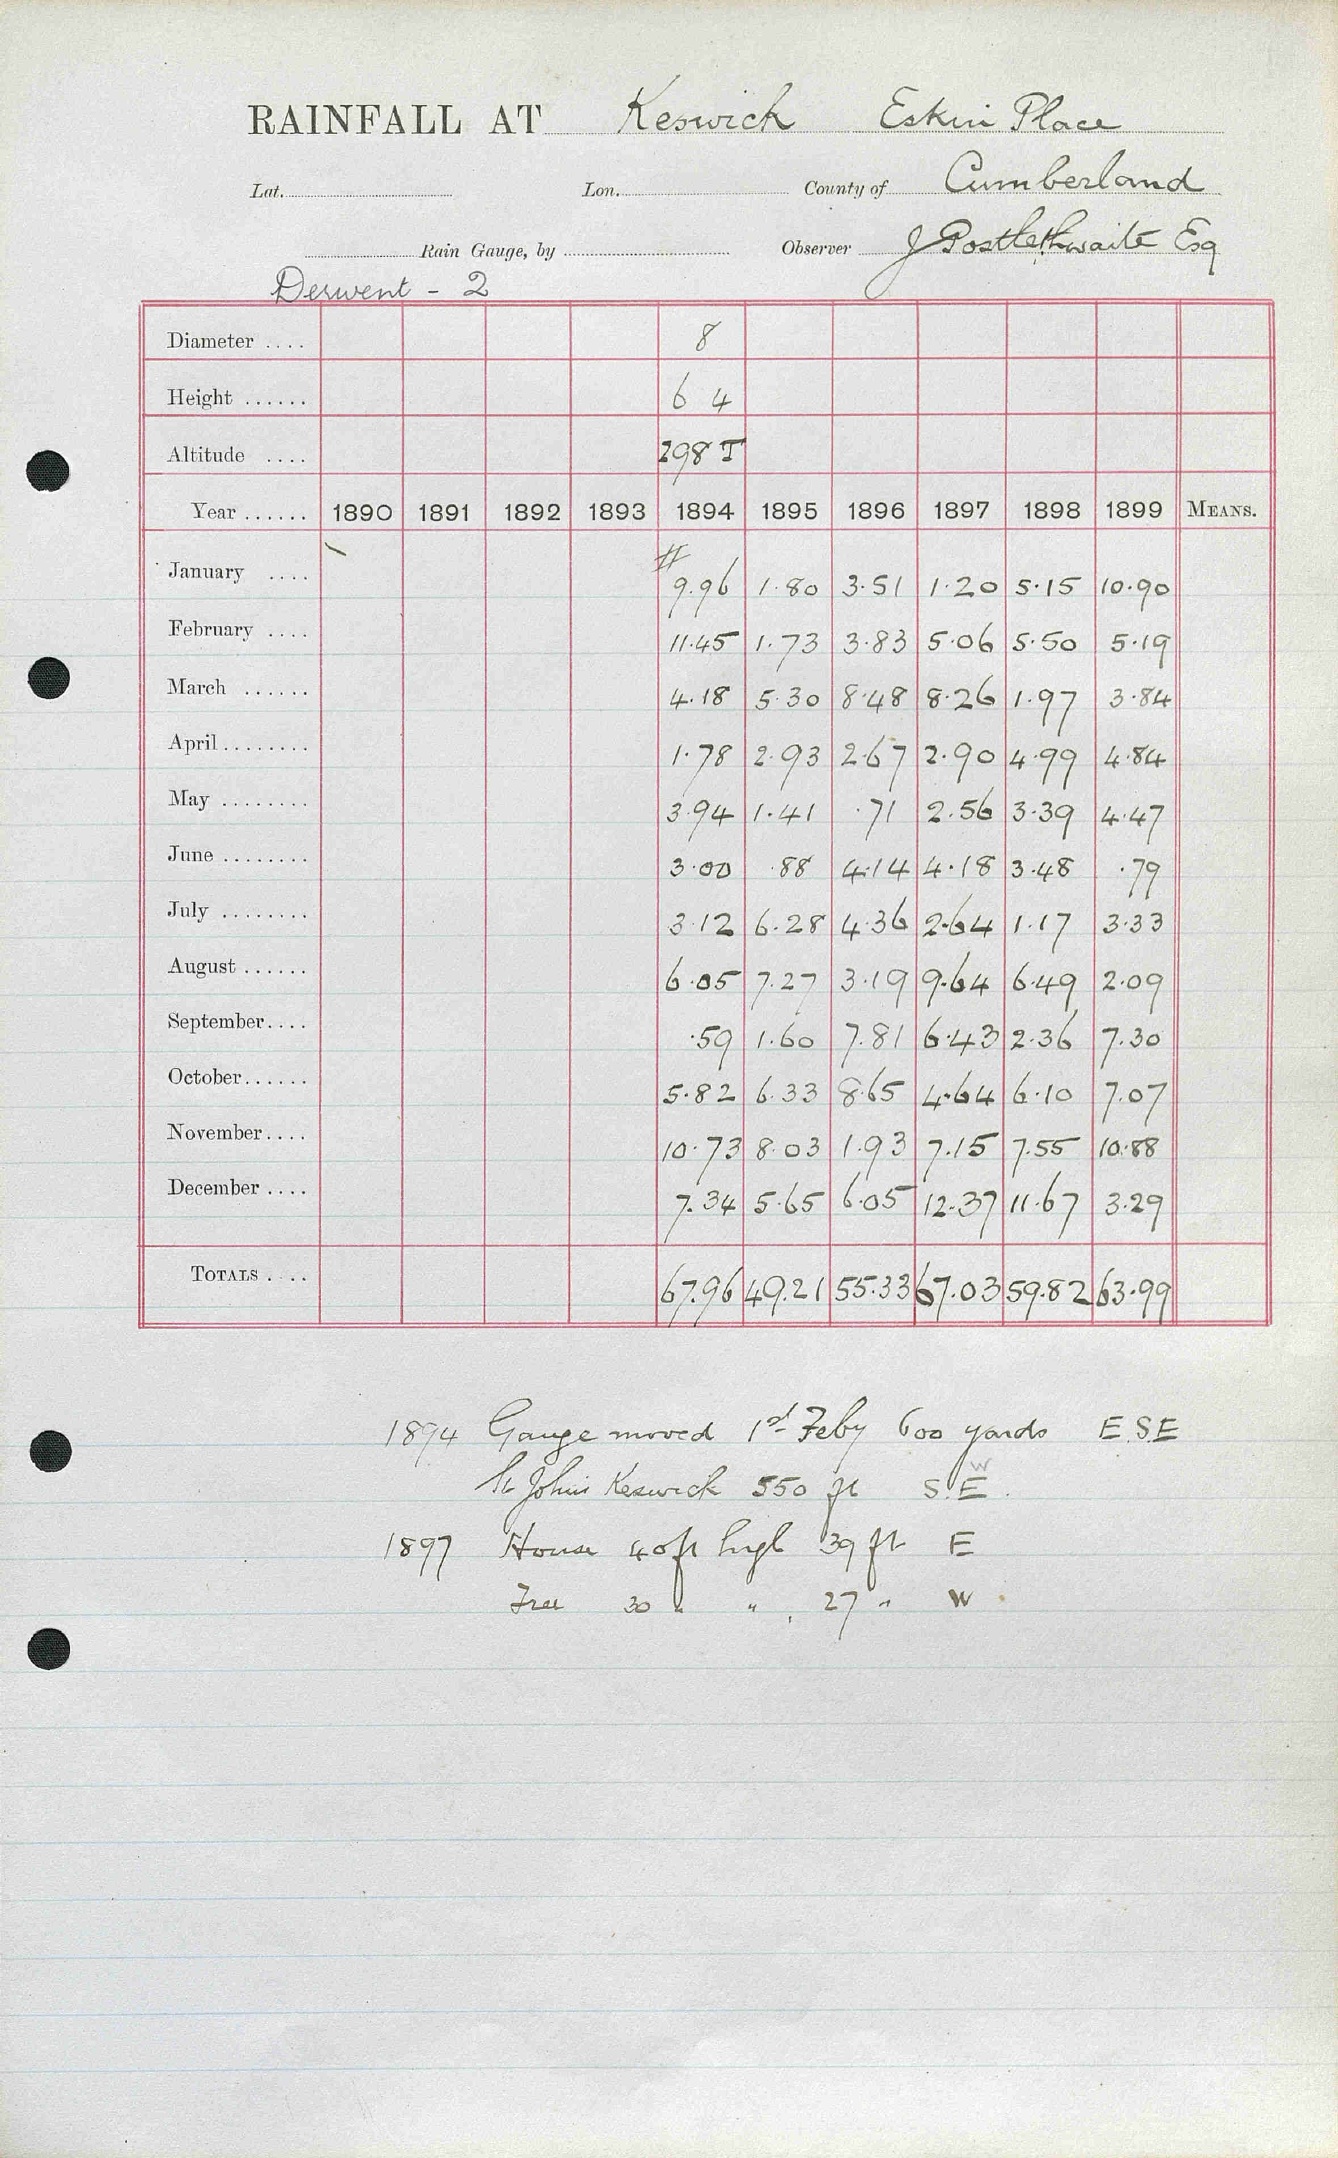 RAINFALL AT Keswick Eskin Place
Lat. Lon. County of Cumberland
Rain Gauge, by Observer J Postlethwaite Esq
Derwent - 2
Diameter .... 8
Height ...... 6 4
Altitude .... 298 T
Year ...... 1890 1891 1892 1893 1894 1895 1896 1897 1898 1899 MEANS.
January .... # 9.96 1.80 3.51 1.20 5.15 10.90
February .... 11.45 1.73 3.83 5.06 5.50 5.19
March ...... 4.18 5.30 8.48 8.26 1.97 3.84
April ........ 1.78 2.93 2.67 2.90 4.99 4.84
May ........ 3.94 1.41 .71 2.56 3.39 4.47
June ........ 3.00 .88 4.14 4.18 3.48 .79
July ........ 3.12 6.28 4.36 2.64 1.17 3.33
August ...... 6.05 7.27 3.19 9.64 6.49 2.09
September .... .59 1.60 7.81 6.43 2.36 7.30
October ...... 5.82 6.33 8.65 4.64 6.10 7.07
November .... 10.73 8.03 1.93 7.15 7.55 10.88
December .... 7.34 5.65 6.05 12.37 11.67 3.29
TOTALS .... 67.96 49.21 55.33 67.03 59.82 63.99
1894 Gauge moved 1st Feby 600 yards E.S.E
St Johns Keswick 550 ft S.E W
1897 House 40 ft high 39 ft E
Tree 30 " " 27 " W